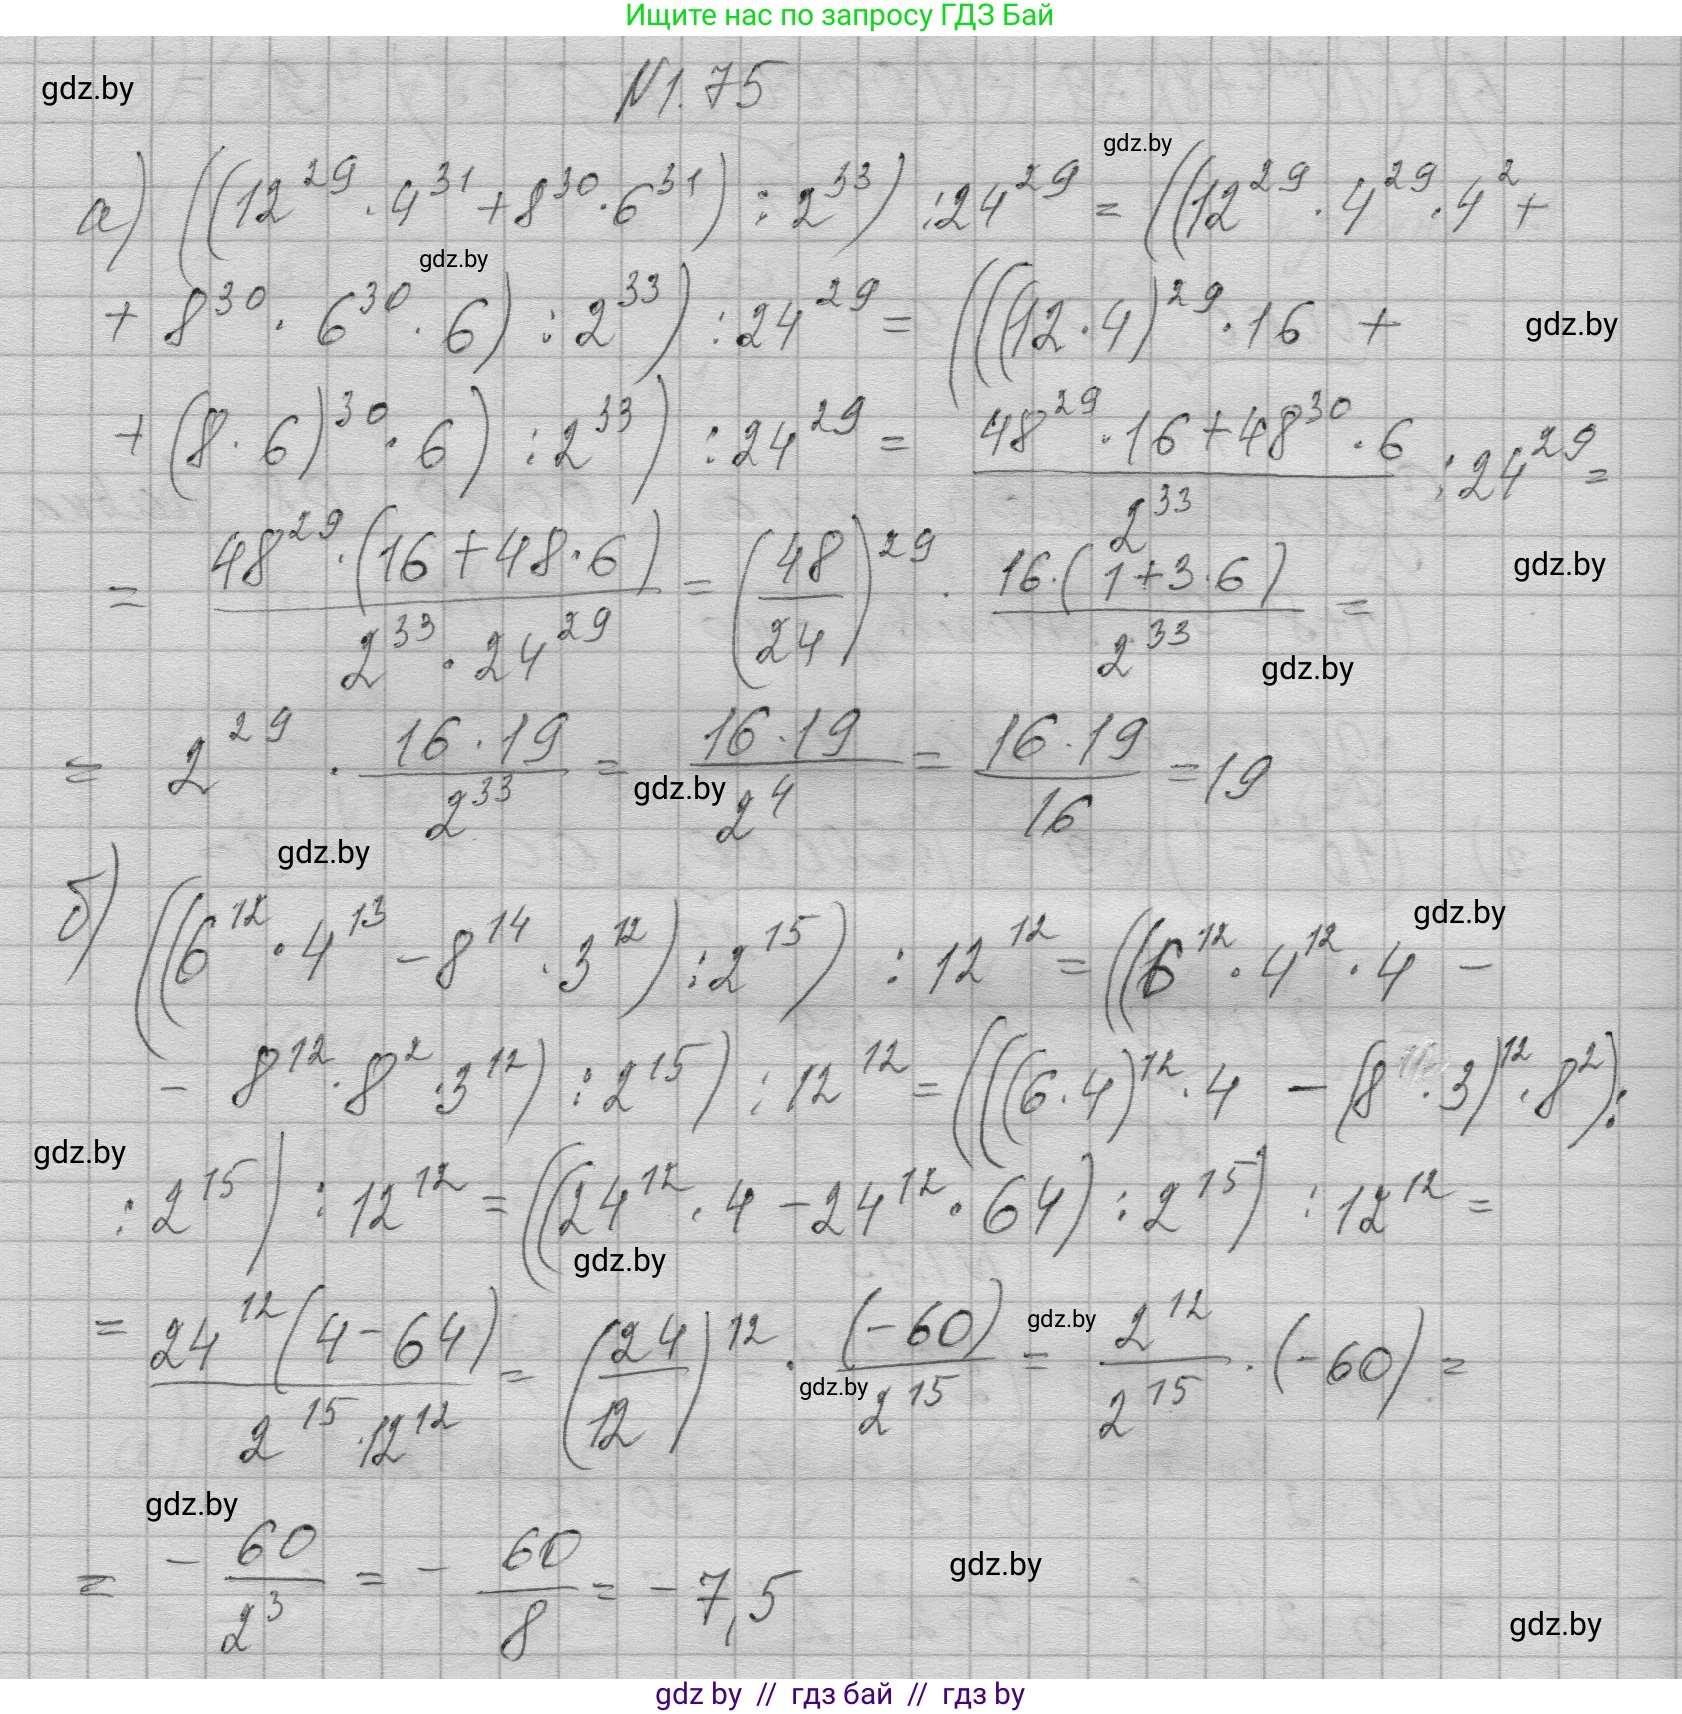 Ищите нас по запросу ГДЗ Бай
N1.75
gdz.by
gdz.by
а) ((12^29 · 4^31 + 8^30 · 6^31) : 2^33) : 24^29 = ((12^29 · 4^29 · 4^2 +
gdz.by
+ 8^30 · 6^30 · 6) : 2^33) : 24^29 = (((12 · 4)^29 · 16 +
gdz.by
+ (8 · 6)^30 · 6) : 2^33) : 24^29 = (48^29 · 16 + 48^30 · 6)/2^33 : 24^29 =
= 48^29 · (16 + 48 · 6)/(2^33 · 24^29) = (48/24)^29 · 16 · (1 + 3 · 6)/2^33 =
gdz.by
gdz.by
= 2^29 · 16 · 19/2^33 = 16 · 19/2^4 = 16 · 19/16 = 19
gdz.by
gdz.by
б) ((6^12 · 4^13 - 8^14 · 3^12) : 2^15) : 12^12 = ((6^12 · 4^12 · 4 -
gdz.by
- 8^12 · 8^2 · 3^12) : 2^15) : 12^12 = (((6 · 4)^12 · 4 - (8 · 3)^12 · 8^2) :
gdz.by
: 2^15) : 12^12 = ((24^12 · 4 - 24^12 · 64) : 2^15) : 12^12 =
gdz.by
= 24^12 (4 - 64)/(2^15 · 12^12) = (24/12)^12 · (-60)/2^15 = 2^12/2^15 · (-60) =
gdz.by
gdz.by
gdz.by
= - 60/2^3 = - 60/8 = - 7,5
gdz.by
gdz.by
gdz by // гдз бай // гдз by